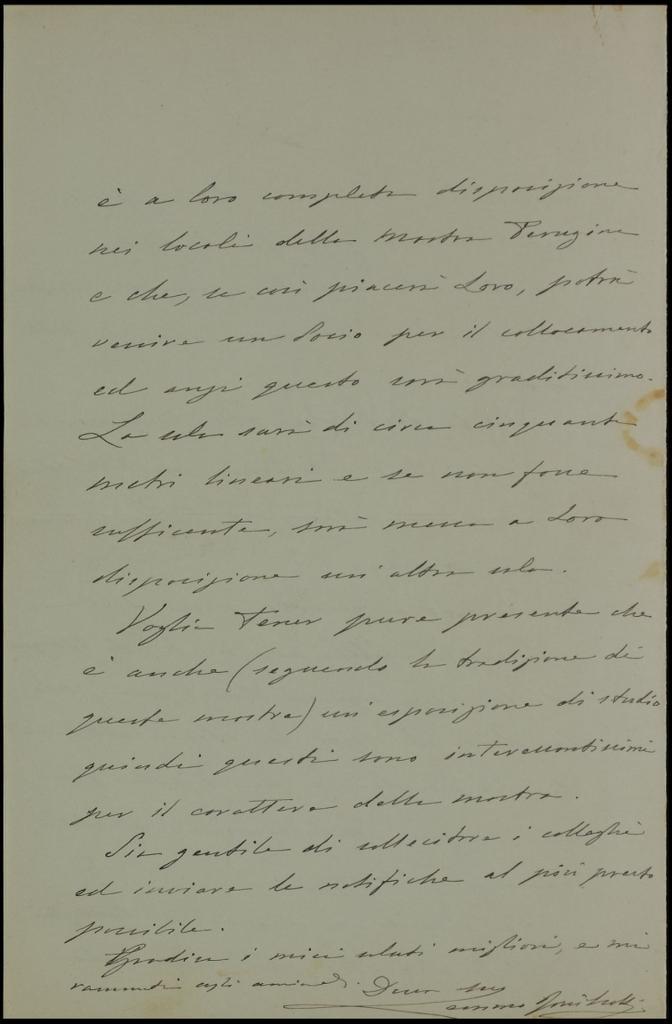 è a loro completa disposizione
nei locali della mostra Perugina
e che, se così piacerà Loro, potrà
venire un Socio per il collocamento
ed anzi questo sarà graditissimo.
La sala sarà di circa cinquanta
metri lineari e se non fosse
sufficente, sarà messa a Loro
disposizione un'altra sala.
Voglia tener pure presente che
è anche (seguendo la tradizione di
questa mostra) un'esposizione di studio
quindi questi sono interessantissimi
per il carattere della mostra.
Sia gentile di sollecitare i colleghi
ed inviare le notifiche al più presto
possibile.
Gradisca i miei saluti migliori, e mi
rammenti agli amici. Suo